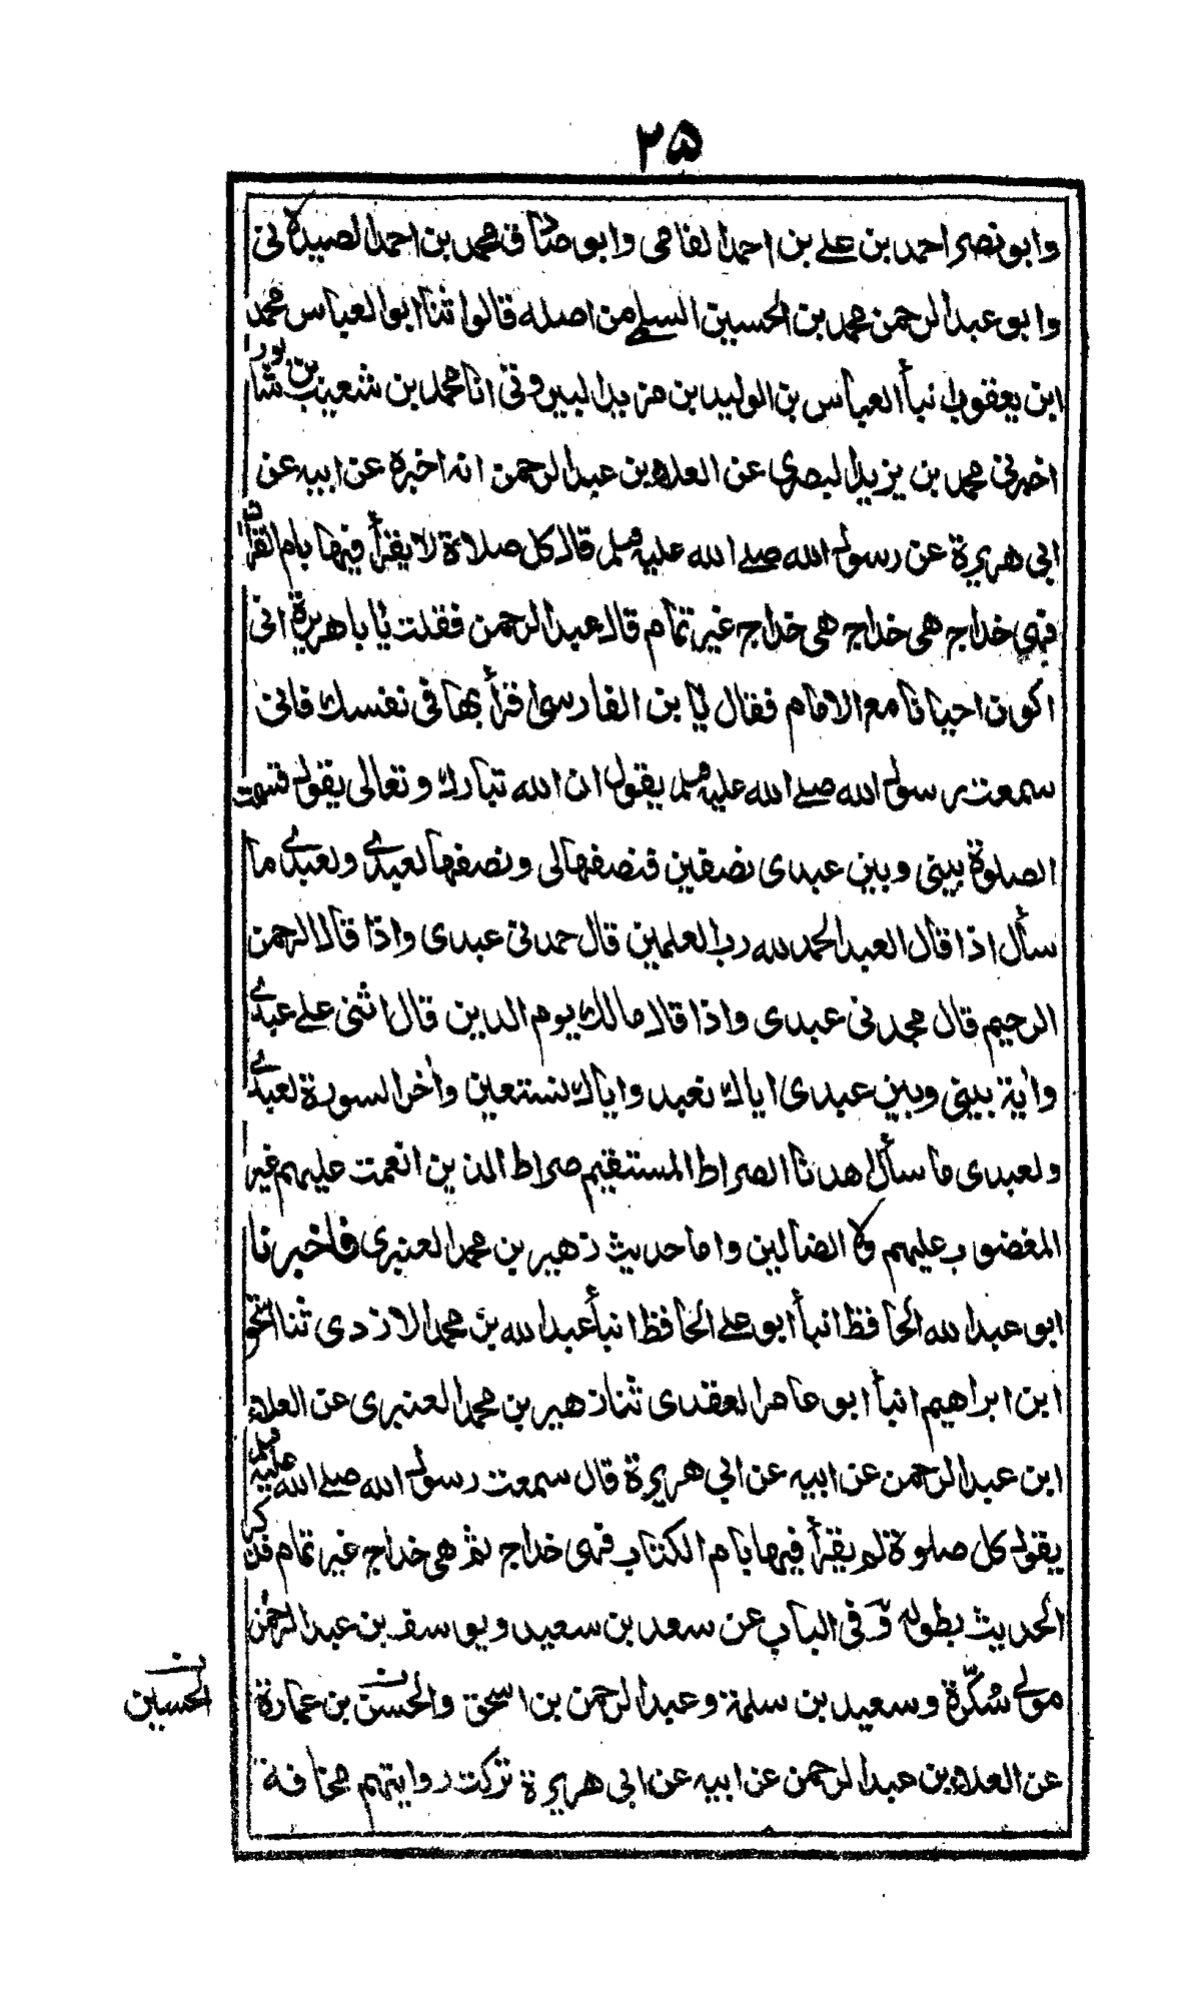 ۲۵
وابو نصر احمد بن علے بن احمد الفامی وابو صادق محمد بن احمد الصیدلانی
وابو عبد الرحمن محمد بن الحسین السلمے من اصله قالوا ثنا ابو العباس محمد
ابن یعقوب انبأ العباس بن الولید بن مزید البیروتی انا محمد بن شعیب بن شابور
اخبرنی محمد بن یزید البصری عن العلاء بن عبد الرحمن انه اخبره عن ابیه عن
ابی هریرة عن رسول الله صلے الله علیه وسلم قال کل صلاة لا یقرأ فیها بام القرآن
فهی خداج هی خداج هی خداج غیر تمام قال عبد الرحمن فقلت یا با هریرة انی
اکون احیانا مع الامام فقال یا بن الفارسی اقرأ بها فی نفسك فانی
سمعت رسول الله صلے الله علیه وسلم یقول ان الله تبارك وتعالی یقول قسمت
الصلوة بینی وبین عبدی نصفین فنصفها لی ونصفها لعبدے ولعبدے ما
سأل اذا قال العبد الحمد لله رب العلمین قال حمدنی عبدی واذا قال الرحمن
الرحیم قال مجدنی عبدی واذا قال مالك یوم الدین قال اثنی علے عبدے
وآیة بینی وبین عبدی ایاك نعبد وایاك نستعین وآخر السورة لعبدے
ولعبدی ما سأل اهدنا الصراط المستقیم صراط الذین انعمت علیهم غیر
المغضوب علیهم ولا الضالین واما حدیث زهیر بن محمد العنبری فاخبرنا
ابو عبد الله الحافظ انبأ ابو علے الحافظ انبأ عبد الله بن محمد الازدی ثنا اسحق
ابن ابراهیم انبأ ابو عامر العقدی ثنا زهیر بن محمد العنبری عن العلاء
ابن عبد الرحمن عن ابیه عن ابی هریرة قال سمعت رسول الله صلے الله علیه وسلم
یقول کل صلوة لم یقرأ فیها بام الکتاب فهی خداج ثم هی خداج غیر تمام فذکر
الحدیث بطوله وفی الباب عن سعد بن سعید ویوسف بن عبد الرحمن
مولے سُکّرة وسعید بن سلمة وعبد الرحمن بن اسحق والحسن بن عمارة
الحسین
عن العلاء بن عبد الرحمن عن ابیه عن ابی هریرة ترکت روایتهم مخافة